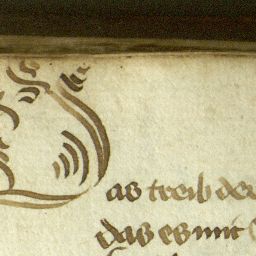 as treib der
das es nit